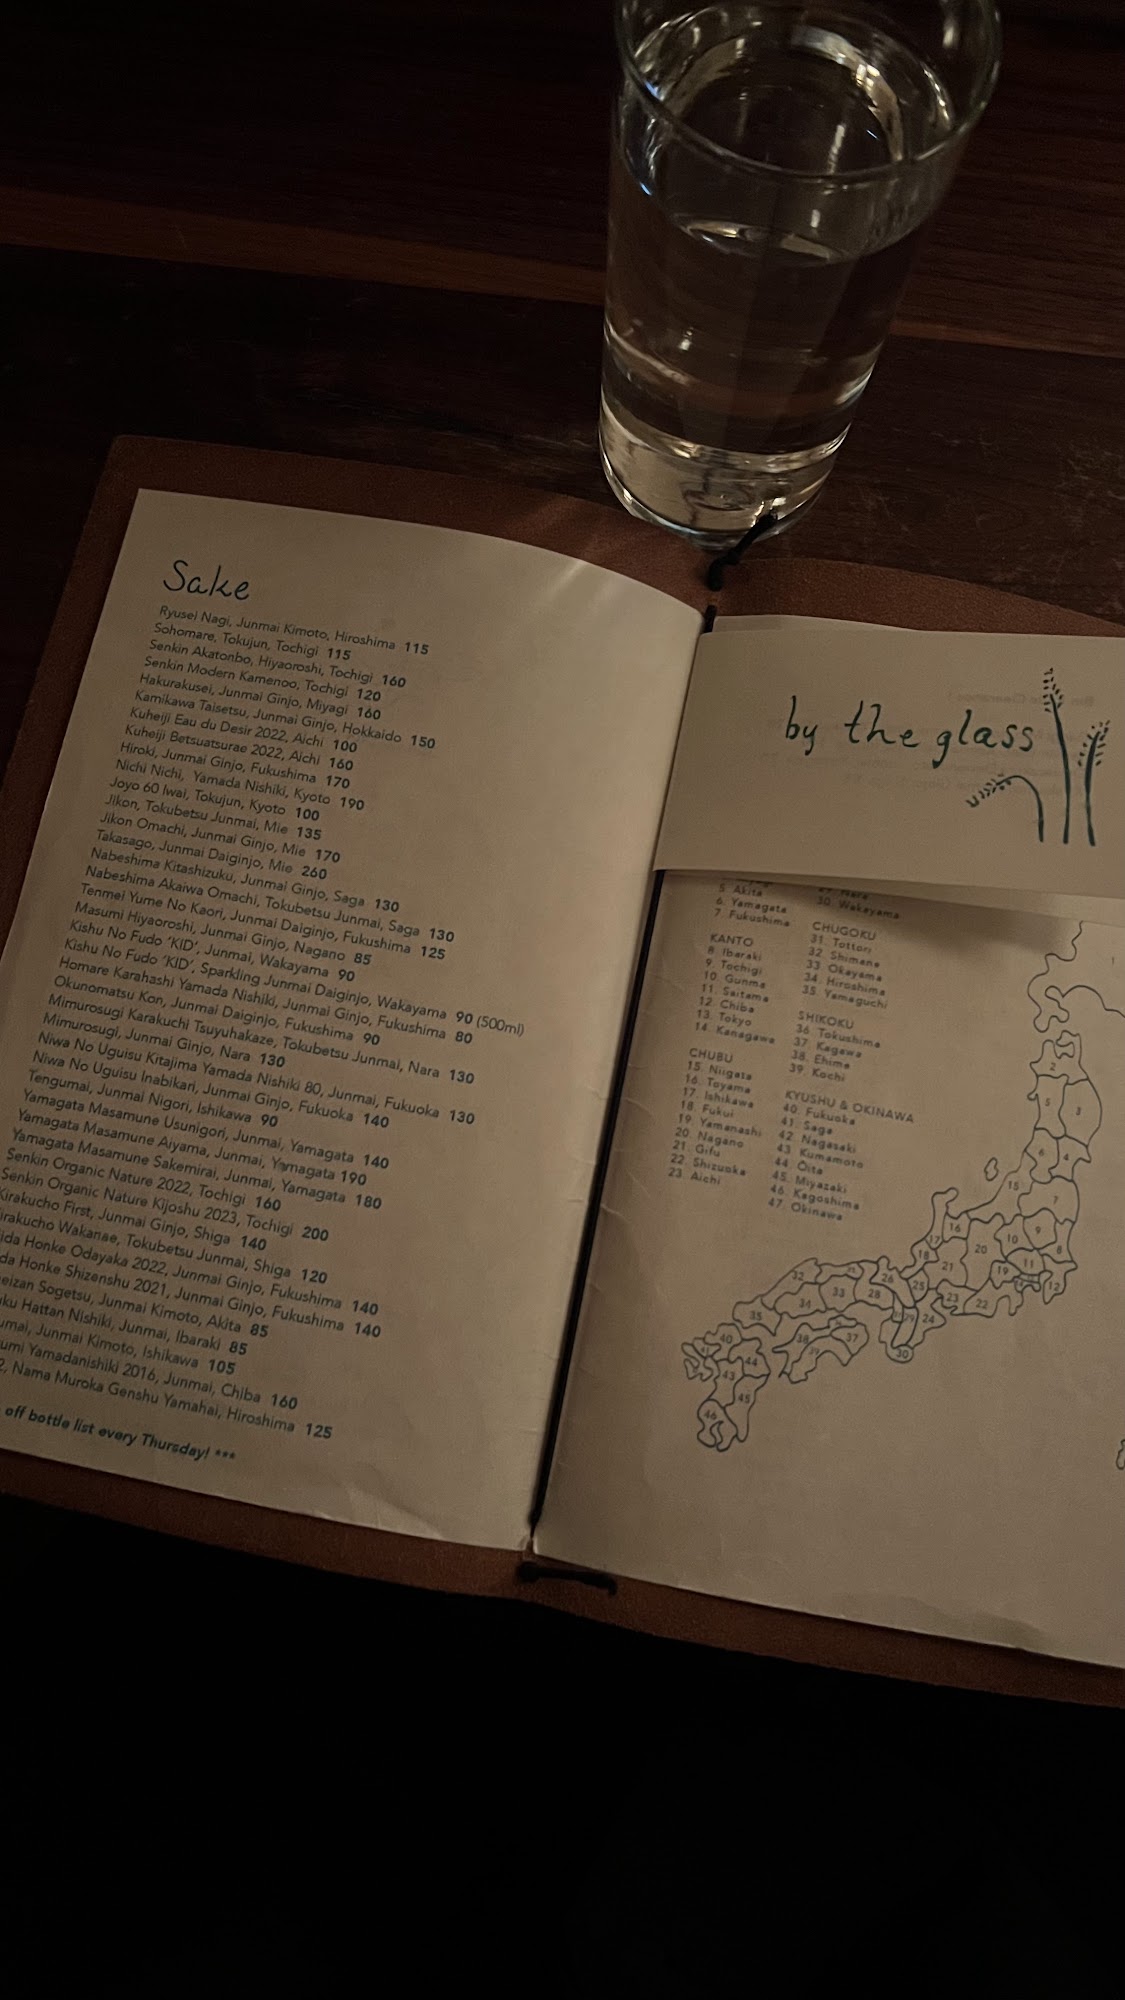 Sake
Ryusei Nagi, Junmai Kimoto, Hiroshima 115
Sohomare, Tokujun, Tochigi 115
Senkin Akatonbo, Hiyaoroshi, Tochigi 160
Senkin Modern Kamenoo, Tochigi 120
Hakurakusei, Junmai Ginjo, Miyagi 160
Kamikawa Taisetsu, Junmai Ginjo, Hokkaido 150
Kuheiji Eau du Desir 2022, Aichi 100
Kuheiji Betsuatsurae 2022, Aichi 160
Hiroki, Junmai Ginjo, Fukushima 170
Nichi Nichi, Yamada Nishiki, Kyoto 190
Joyo 60 Iwai, Tokujun, Kyoto 100
Jikon, Tokubetsu Junmai, Mie 135
Jikon Omachi, Junmai Ginjo, Mie 170
Takasago, Junmai Daiginjo, Mie 260
Nabeshima Kitashizuku, Junmai Ginjo, Saga 130
Nabeshima Akaiwa Omachi, Tokubetsu Junmai, Saga 130
Tenmei Yume No Kaori, Junmai Daiginjo, Fukushima 125
Masumi Hiyaoroshi, Junmai Ginjo, Nagano 85
Kishu No Fudo 'KID', Junmai, Wakayama 90
Kishu No Fudo 'KID', Sparkling Junmai Daiginjo, Wakayama 90 (500ml)
Homare Karahashi Yamada Nishiki, Junmai Ginjo, Fukushima 80
Okunomatsu Kon, Junmai Daiginjo, Fukushima 90
Mimurosugi Karakuchi Tsuyuhakaze, Tokubetsu Junmai, Nara 130
Mimurosugi, Junmai Ginjo, Nara 130
Niwa No Uguisu Kitajima Yamada Nishiki 80, Junmai, Fukuoka 130
Niwa No Uguisu Inabikari, Junmai Ginjo, Fukuoka 140
Tengumai, Junmai Nigori, Ishikawa 90
Yamagata Masamune Usunigori, Junmai, Yamagata 140
Yamagata Masamune Aiyama, Junmai, Yamagata 190
Yamagata Masamune Sakemirai, Junmai, Yamagata 180
Senkin Organic Nature 2022, Tochigi 160
Senkin Organic Nature Kijoshu 2023, Tochigi 200
Kirakucho First, Junmai Ginjo, Shiga 140
irakucho Wakanae, Tokubetsu Junmai, Shiga 120
ida Honke Odayaka 2022, Junmai Ginjo, Fukushima 140
da Honke Shizenshu 2021, Junmai Ginjo, Fukushima 140
eizan Sogetsu, Junmai Kimoto, Akita 85
ku Hattan Nishiki, Junmai, Ibaraki 85
umai, Junmai Kimoto, Ishikawa 105
umi Yamadanishiki 2016, Junmai, Chiba 160
2, Nama Muroka Genshu Yamahai, Hiroshima 125
off bottle list every Thursday! ***
by the glass
5. Akita
6. Yamagata
7. Fukushima
KANTO
8. Ibaraki
9. Tochigi
10. Gunma
11. Saitama
12. Chiba
13. Tokyo
14. Kanagawa
CHUBU
15. Niigata
16. Toyama
17. Ishikawa
18. Fukui
19. Yamanashi
20. Nagano
21. Gifu
22. Shizuoka
23. Aichi
29. Nara
30. Wakayama
CHUGOKU
31. Tottori
32 Shimane
33 Okayama
34. Hiroshima
35. Yamaguchi
SHIKOKU
36 Tokushima
37. Kagawa
38. Ehime
39. Kochi
KYUSHU & OKINAWA
40. Fukuoka
41. Saga
42. Nagasaki
43. Kumamoto
44. Oita
45. Miyazaki
46. Kagoshima
47. Okinawa
1
2
5
3
6
4
15
7
16
9
17
10
20
8
18
21
11
19
12
32
26
25
33
28
23
22
34
24
35
38
37
40
39
30
44
43
45
46